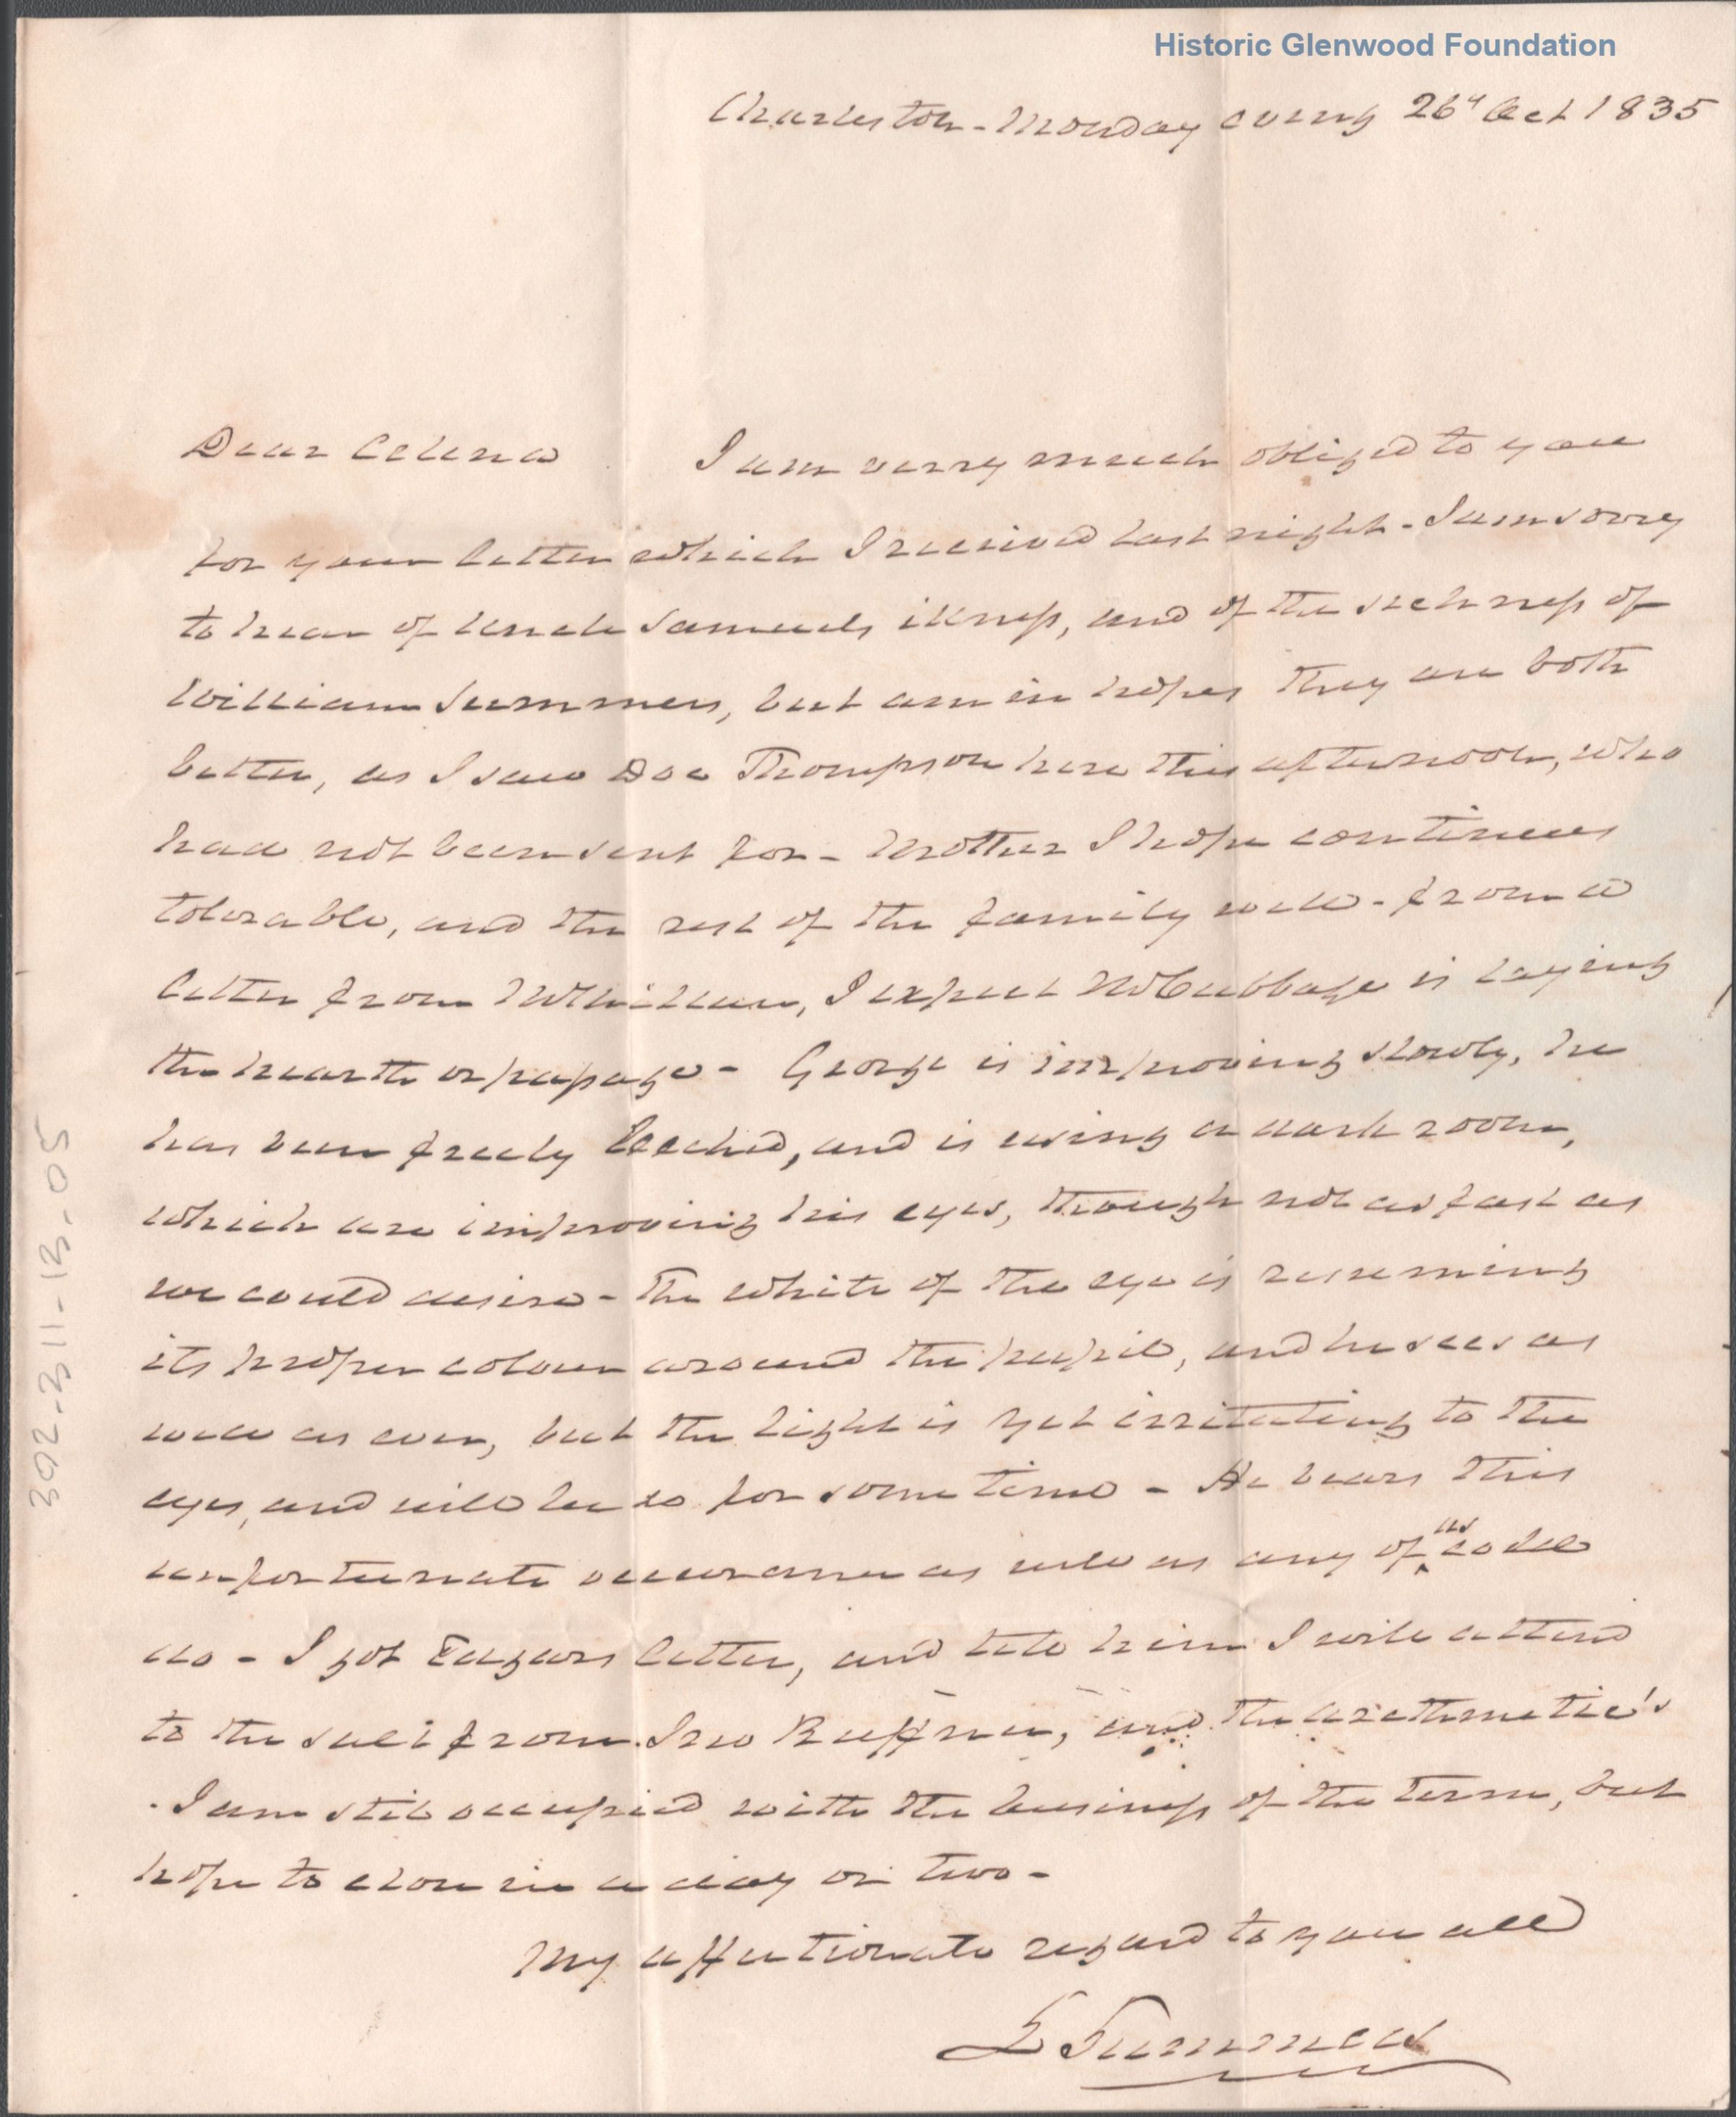 Historic Glenwood Foundation
Charleston - Monday eveng 26th Oct 1835
Dear Celena I am verry much obliged to you
for your letter which I received last night - I am sorry
to hear of Uncle Samuels illness, and of the sickness of
William Summers, but am in hopes they are both
better, as I saw Doc Thompson here this afternoon, who
had not been sent for - Mother I hope continues
tolerable, and the rest of the family well - from a
letter from I expect McCubbage is laying
the hearth or passage - George is improving slowly, he
has been freely leeched, and is using a dark room,
which are improving his eyes, though not as fast as
we could desire - The white of the eye is resuming
its proper colour around the pupil, and he sees as
well as ever, but the light is yet irritating to the
eyes, and will be so for some time - He bears this
unfortunate occurance as well as any of us could
do - I got Edgars letter, and tell him I will attend
to the salt from Jno Ruffner, and the arethmetic's
I am still occupied with the business of the term, but
hope to close in a day or two -
My affectionate regard to you all
L Summers
392-311-13-05